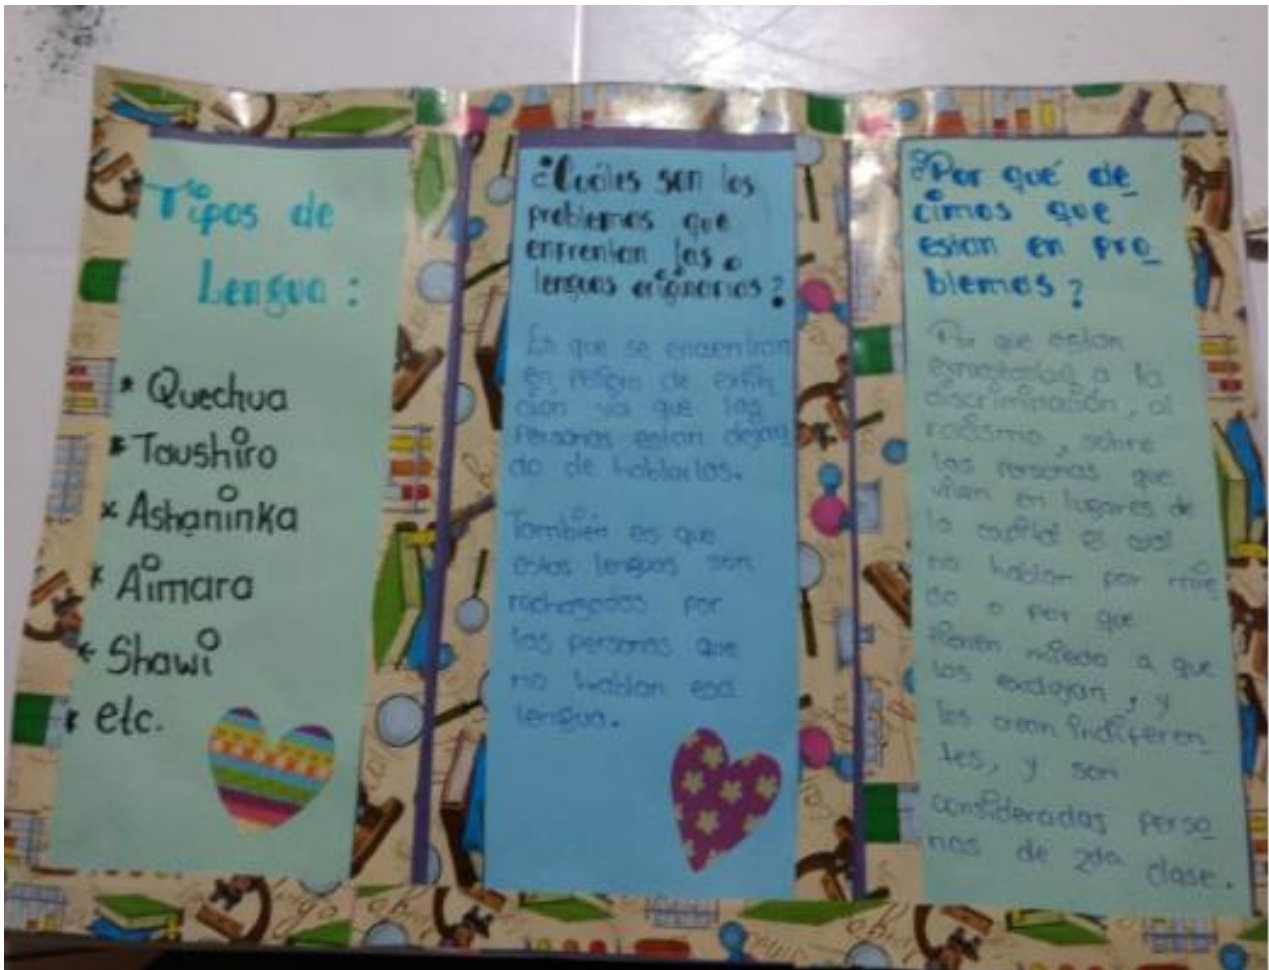 Tipos de
Lengua :
* Quechua
* Taushiro
* Ashaninka
* Aimara
* Shawi
* etc.
¿Cuáles son los
problemas que
enfrentan las
lenguas originarias?
Es que se encuentran
en peligro de extin
cion ya que las
personas estan dejan
do de hablarlas.
También es que
estas lenguas son
rechazadas por
las personas que
no hablan esa
lengua.
¿Por qué de
cimos que
estan en pro
blemas?
Por que estan
a la
discriminación, al
racismo, sobre
las personas que
viven en lugares de
la capital es así
no hablan por mie
do o por que
tienen miedo a que
los excluyan, y
los crean indiferen
tes, y son
consideradas perso
nas de 2da clase.